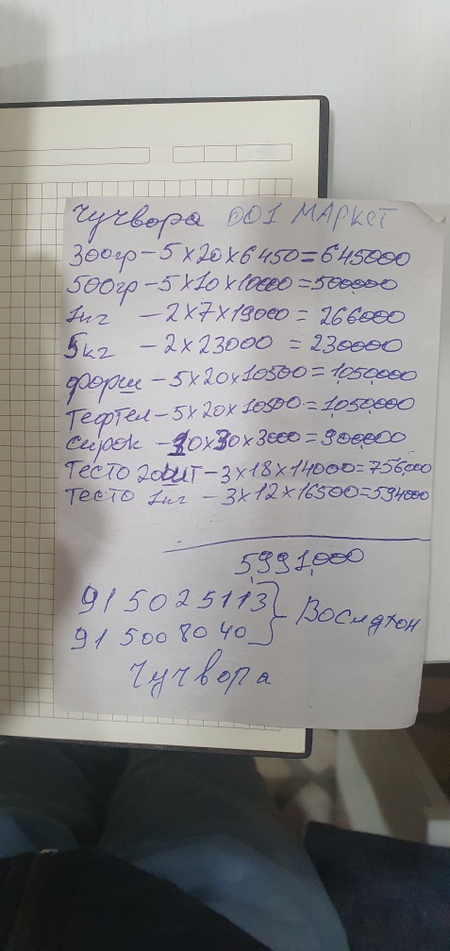 Чучвора 001 МАРКЕТ
300гр – 5 x 20 x 6450 = 645000
500гр – 5 x 10 x 10000 = 500000
1кг – 2 x 7 x 19000 = 266000
5кг – 2 x 23000 = 230000
фарш – 5 x 20 x 10500 = 1,050,000
Тефтел – 5 x 20 x 10500 = 1,050,000
Сирок – 10 x 30 x 3000 = 900,000
Тесто 20шт – 3 x 18 x 14000 = 756,000
Тесто 1кг – 3 x 12 x 16500 = 594000
5,991,000
91 502 51 13
91 500 80 40
Чучвора